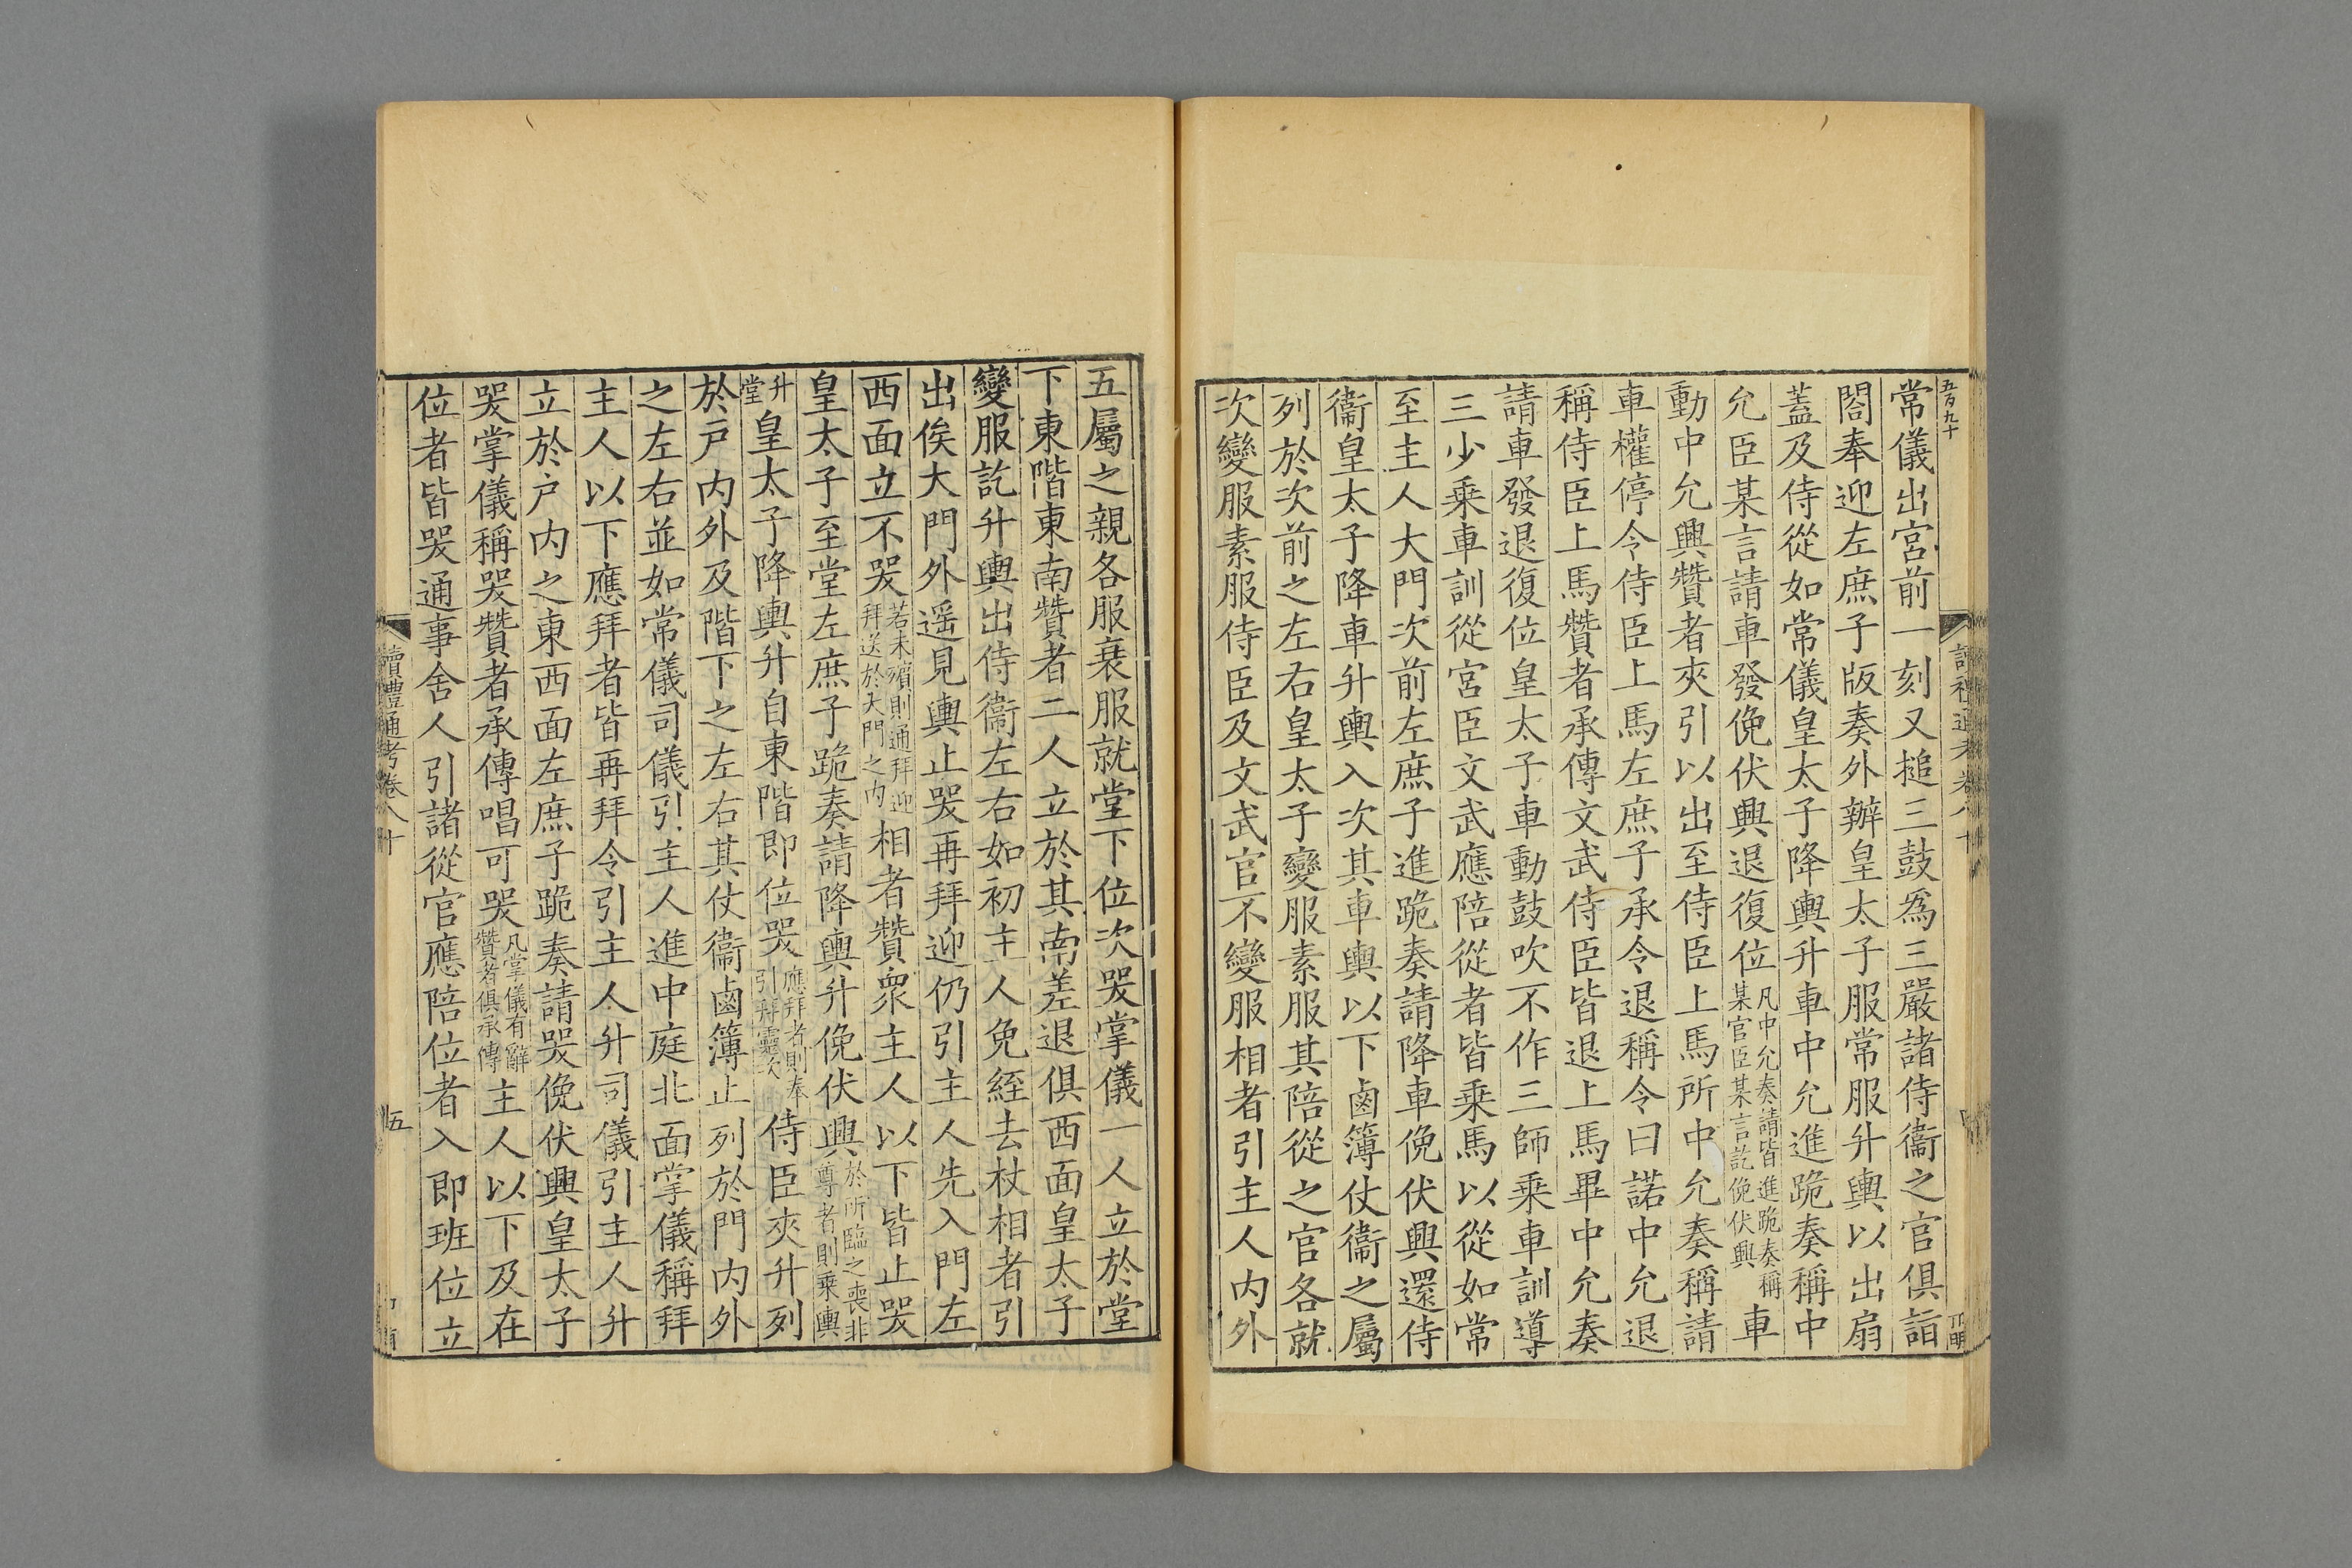 五百九十
常儀出宮前一刻又搥三鼓爲三嚴諸侍衞之官俱詣
閤奉迎左庶子版奏外辦皇太子服常服升輿以出扇
蓋及侍從如常儀皇太子降輿升車中允進跪奏稱中
允臣某言請車發俛伏興退復位凡中允奏請皆進跪奏稱某官臣某言訖俛伏興車
動中允興贊者夾引以出至侍臣上馬所中允奏稱請
車權停令侍臣上馬左庶子承令退稱令曰諾中允退
稱侍臣上馬贊者承傳文武侍臣皆退上馬畢中允奏
請車發退復位皇太子車動鼓吹不作三師乘車訓導
三少乘車訓從宮臣文武應陪從者皆乘馬以從如常
至主人大門次前左庶子進跪奏請降車俛伏興還侍
衞皇太子降車升輿入次其車輿以下鹵簿仗衞之屬
列於次前之左右皇太子變服素服其陪從之官各就
次變服素服侍臣及文武官不變服相者引主人內外
五屬之親各服衰服就堂下位次哭掌儀一人立於堂
下東階東南贊者二人立於其南差退俱西面皇太子
變服訖升輿出侍衞左右如初主人免絰去杖相者引
出俟大門外遥見輿止哭再拜迎仍引主人先入門左
西面立不哭若未殯則通拜迎拜送於大門之內相者贊衆主人以下皆止哭
皇太子至堂左庶子跪奏請降輿升俛伏興於所臨之喪非尊者則乘輿
升堂皇太子降輿升自東階即位哭應拜者則奉引拜靈次侍臣夾升列
於戶內外及階下之左右其仗衞鹵簿止列於門內外
之左右並如常儀司儀引主人進中庭北面掌儀稱拜
主人以下應拜者皆再拜令引主人升司儀引主人升
立於戶內之東西面左庶子跪奏請哭俛伏興皇太子
哭掌儀稱哭贊者承傳唱可哭凡掌儀有辭贊者俱承傳主人以下及在
位者皆哭通事舍人引諸從官應陪位者入即班位立
讀禮通考卷八十
五